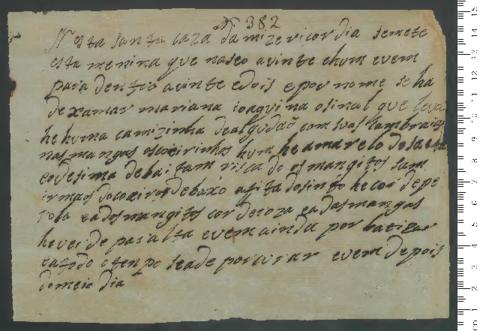 Nº 382
Nesta santa caza da mizericordia se mete
esta menina que naseo a vinte e hum e vem
para dentro a vinte e dois e por nome se ha
de xamar mariana joaquina o sinal que leva
he huma camizinha de algudaõ com suas
nas mangas os coeirinhos hum he amarelo
e o de sima de baitam riscado os mangitos sam
irmaos do coeiro debaxo a fita do sinto he cor de pe
rola e a dos mangitos cor de roza e a das mangas
he verde palalta e vem ainda por batizar
e a todo o tempo se ade porcurar e vem depois
do meio dia